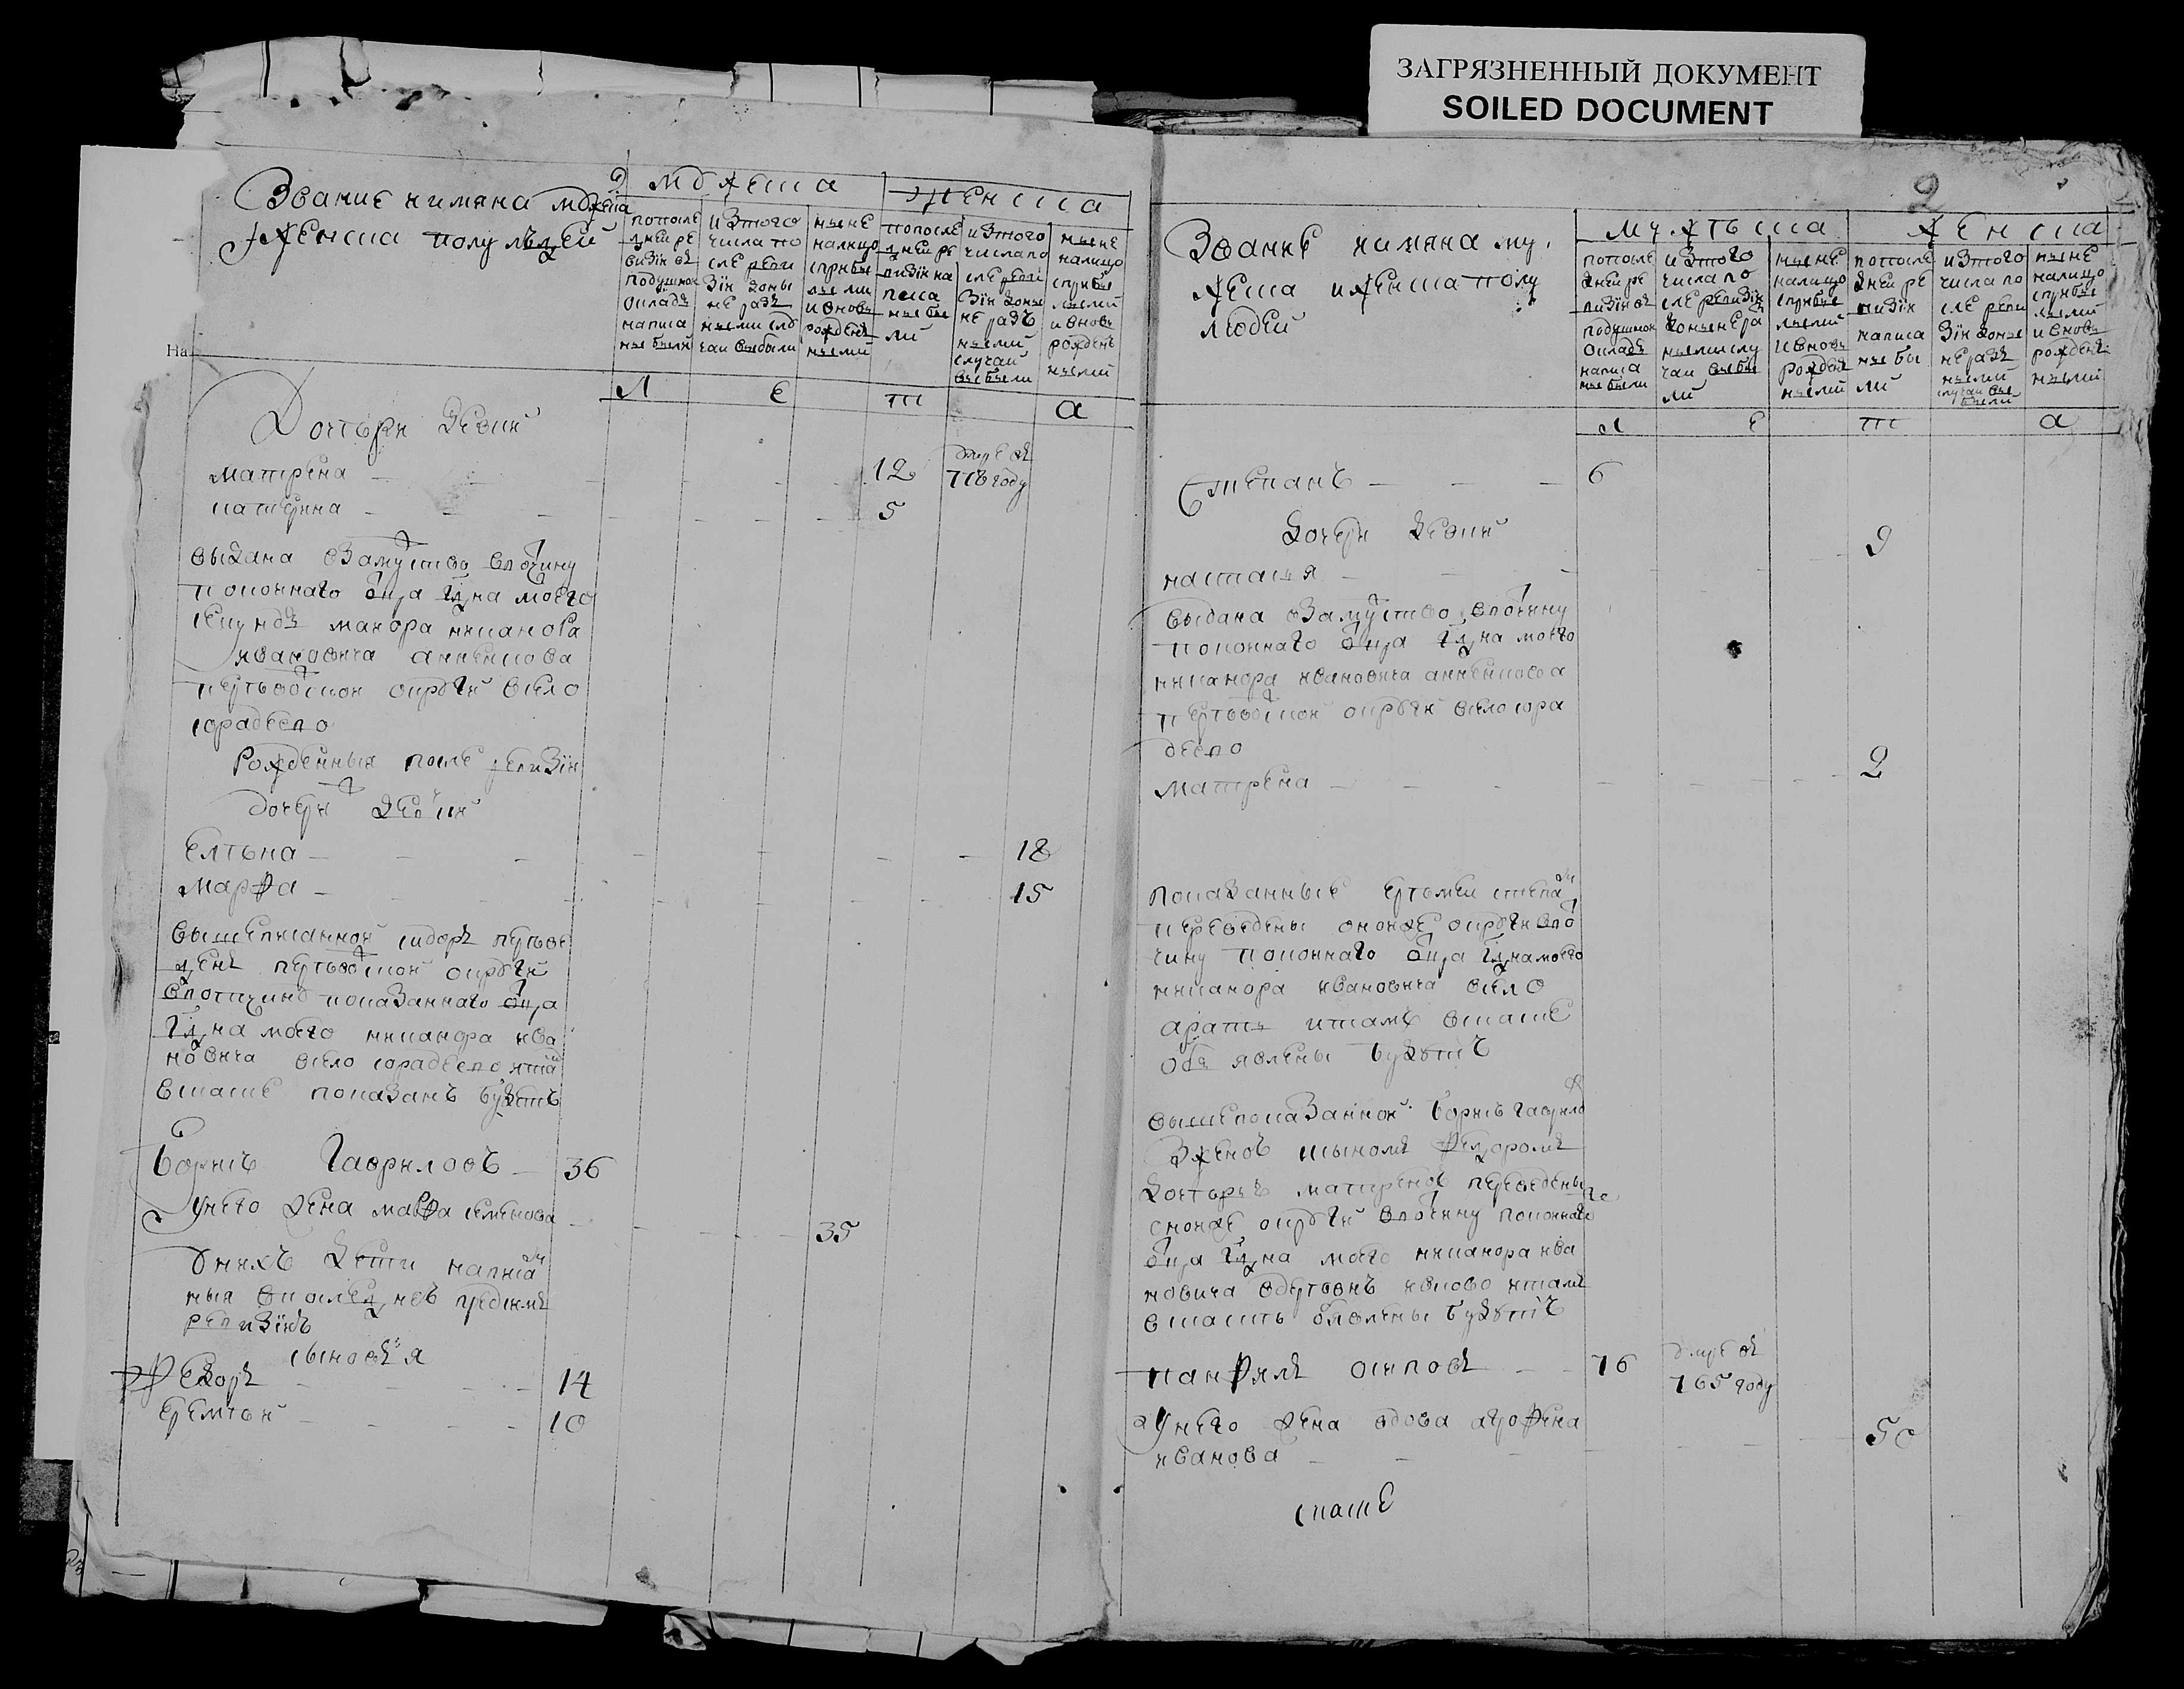 ЗАГРЯЗНЕННЫЙ ДОКУМЕНТ
SOILED DOCUMENT
Звание иимяна мужеска
иженска полу людей
мужеска
женска
попосле
дней ре
визіи въ
подушном
окладъ
написа
ные были
изтого
числа по
сле реви
зіи доны
не разъ
ными слу
чаи выбыли
ныне
налицо
сприбы
лыми
ивновь
рожден
ными
попосле
дней ре
визіи на
писа
ные бы
ли
изтого
числа по
сле реви
зіи доны
не разъ
ными
случаи
выбыли
ныне
налицо
сприбы
лыми
ивновь
рожден
ными
На
л е т а
Дочтери девки
матрена 12 умре въ
776 году
катерина 5
выдана взамуство ввотчину
покоинаго отца гдна моего
секундъ маиора никанора
ивановича анненкова
пертовской округи всело
сорадеево
Рожденныя после ревизіи
дочери девки
елтена 18
марфа 15
вышеписанной сидоръ переве
денъ пертовской округи
ввотчину показаннаго отца
гдна моего никанора ива
новича вело сорадеево итам
вскаске показанъ будетъ
Борисъ Гавриловъ 36
Унего жена мавра семенова 35
Уних дети написан
ныя впоследнею предсимъ
ревизию
сыновья
Федоръ 14
еремеи 10
2
Звание иимяна му
жеска иженска полу
людей
мужеска
женска
попосле
дней ре
визіи въ
подушном
окладъ
написа
ные были
изтого
числа по
сле ревизіи
доныне ра
ными слу
чаи выбы
ли
ныне
налицо
сприбы
лыми
ивновь
рожден
ными
попосле
дней ре
визіи
написа
ные бы
ли
изтого
числа по
сле реви
зіи доны
не разъ
ными
случаи вы
были
ныне
налицо
сприбы
лыми
ивновь
рожден
ными
л е т а
Степанъ 6
дочери девки
настася 9
выдана взамуство ввотчину
покоинаго отца гдна моего
никанора ивановича анненкова
пертовской округи село сора
деево
матрена 2
показанные ертемеи степан
переведены оноиже округи вво
чину покоинаго отца гднамоего
никанора ивановича вело
арать итамъ вскаске
объ явлены будутъ
вышепоказанной борисъ гаврило
зженою ссыномъ федоромъ
дочтерью матреною переведены
сноиже округи ввотчину покоинаго
отца гдна моего никанора ива
новича вдеревню итамъ
вскаске обявлены будутъ
панфилъ осиповъ 76 умре въ
765 году
Унего жена вдова агрофена
иванова 50
скаске